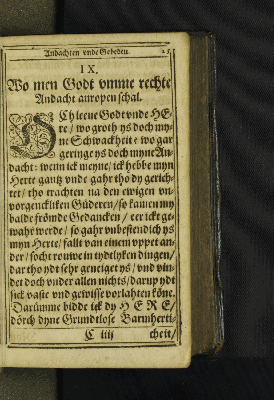 Andachten vnde Gebeden. 25
IX.
Wo men Godt vmme rechte
Andacht anropen schal.
OCh leeue Godt vnde HE-
re / wo groth ys doch my-
ne Schwackheit: wo gar
geringe ys doch myne An-
dacht: wenn ick meyne / ick hebbe myn
Herte gantz vnde gahr tho dy gerich-
tet / tho trachten na den ewigen vn-
vorgenckliken Güderen / so kamen my
balde frömde Gedancken / eer ickt ge-
wahr werde / so gahr vnbestendich ys
myn Herte / fallt van einem vppet an-
der / socht rouwe in tydtlyken dingen /
dar tho ydt sehr geneiget ys / vnd vin-
det doch vnder allen nichts / darup ydt
sick vaste vnd gewisse vorlahten köne.
Darümme bidde ick dy HERE /
dörch dyne Grundtlose Barmherti-
C iiij cheit /